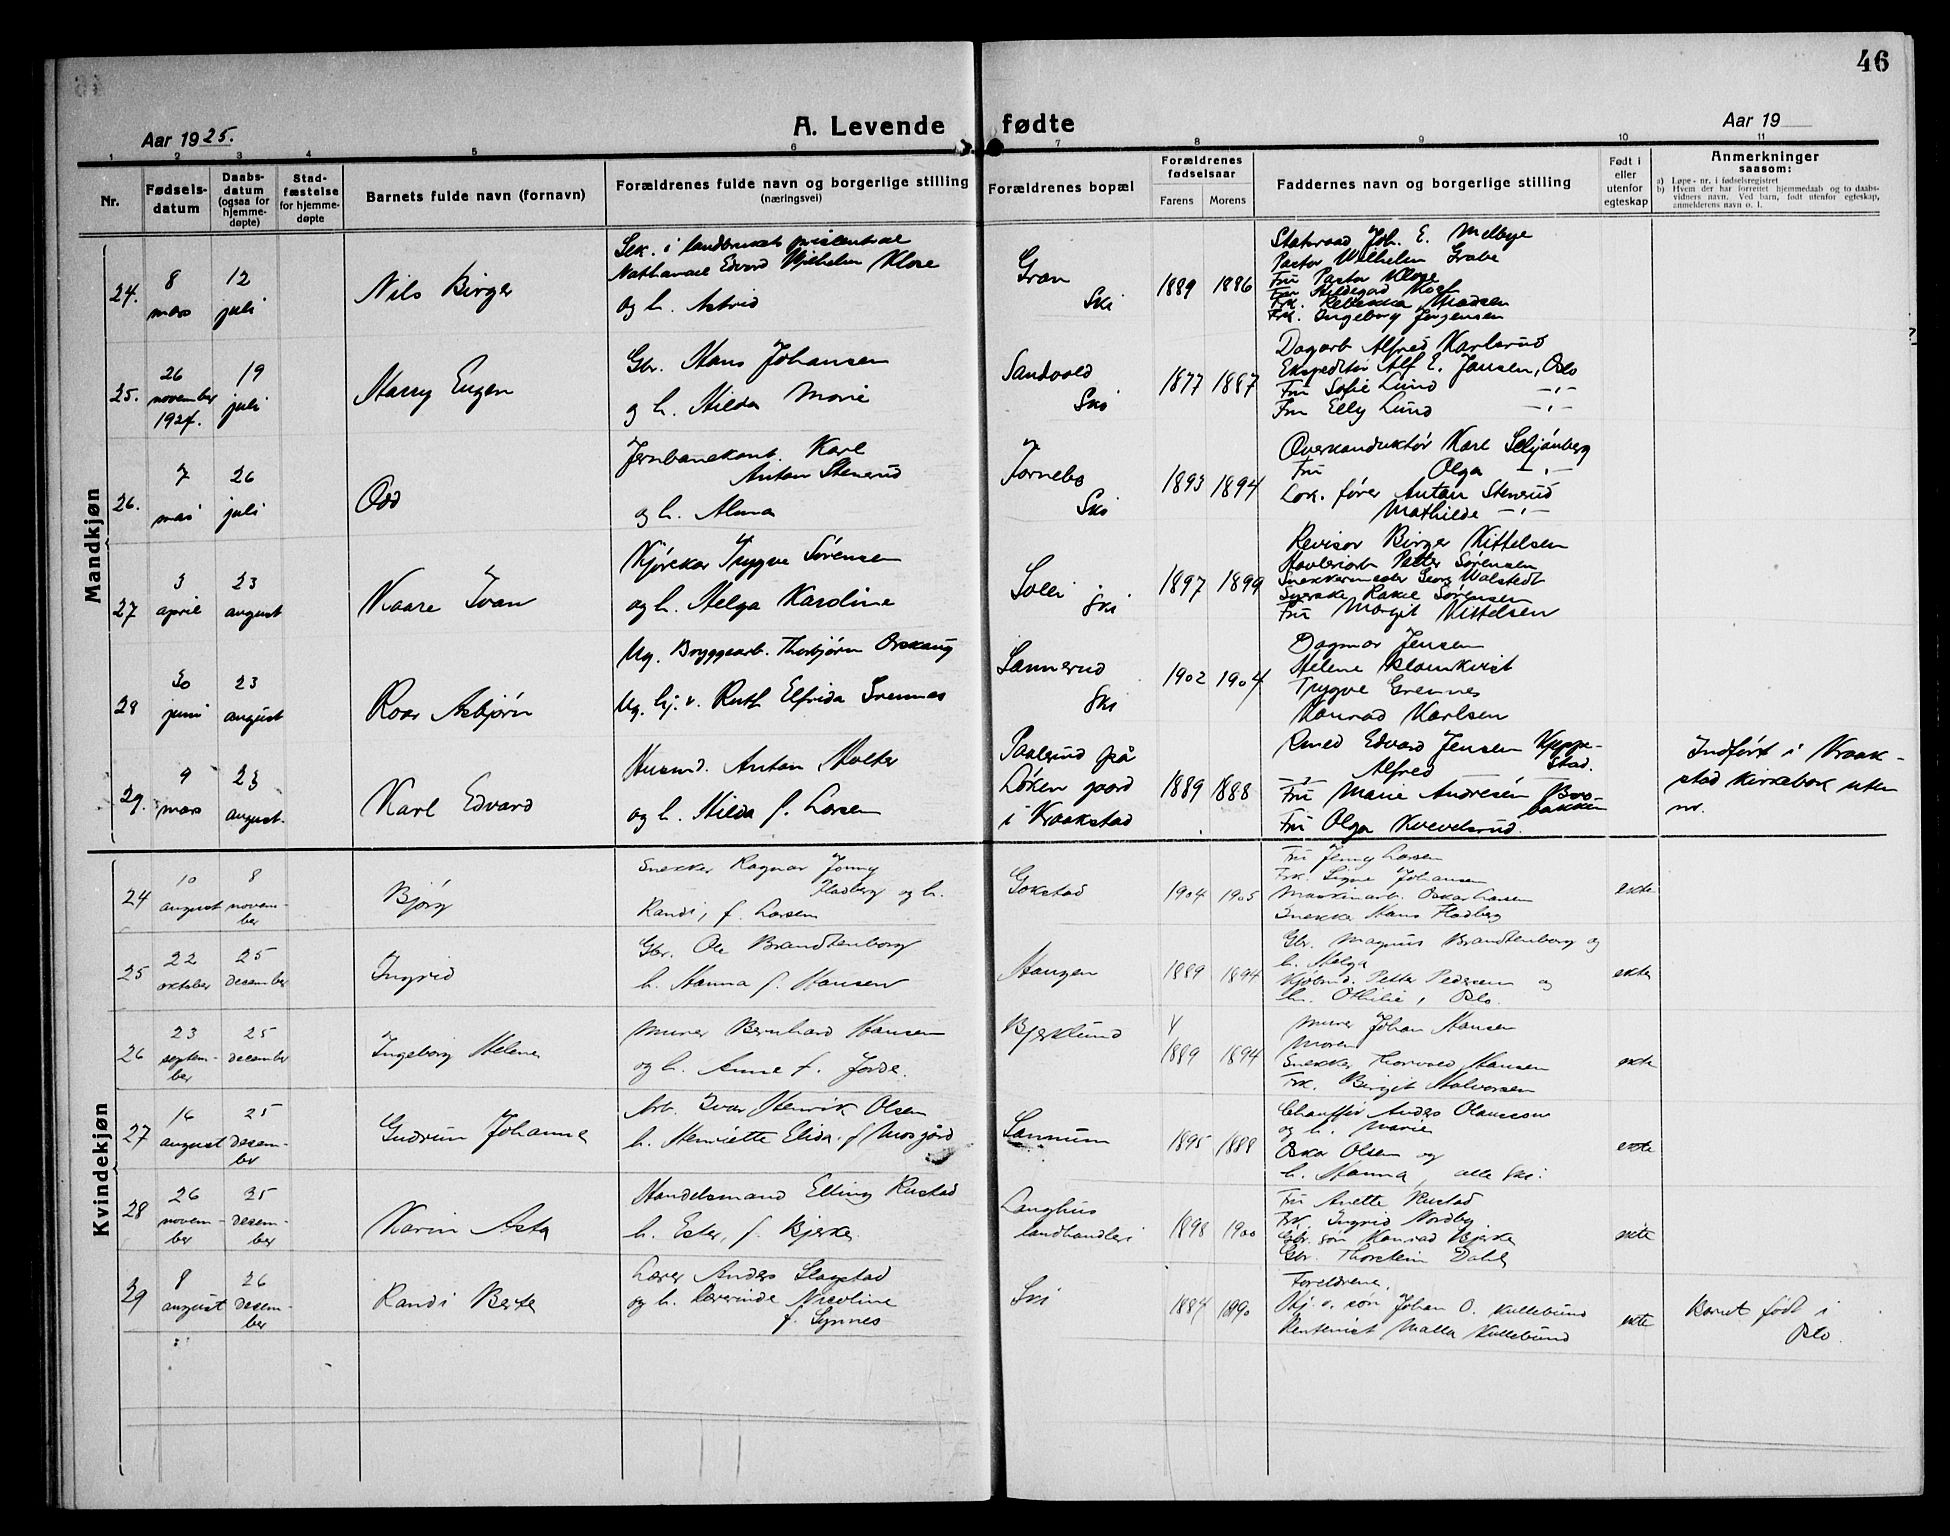 46
Aar 1925.
A. Levende fødte
Aar 19
1 2 3 4 5 6 7 8 9 10 11
Nr.
Fødsels-
datum
Daabs-
datum
(ogsaa for
hjemme-
døpte)
Stad-
fæstelse
for hjemme-
døpte
Barnets fulde navn (fornavn)
Forældrenes fulde navn og borgerlige stilling
(næringsvei)
Forældrenes bopæl
Forældrenes
fødselsaar
Farens Morens
Faddernes navn og borgerlige stilling
Født i
eller
utenfor
egteskap
Anmerkninger
saasom:
a) Løpe-nr. i fødselsregistret
b) Hvem der har forrettet hjemmedaab og to daabs-
vidners navn. Ved barn, født utenfor egteskap,
anmelderens navn o. l.
Mandkjøn
24.
8
mars
12
juli
Nils Birger
Sek. i landbruket
Edvard Vilhelm Klose
og h. Astrid
Gran
Ski
1889 1886
Statsraad Joh. E. Melbye
Pastor Wilhelm Grabe
Fru Pastor Klose
Fru Hildegard
Frk. Rebekka Madsen
Frk. Ingeborg Jørgensen
25.
26
november
1924.
19
juli
Harry Eugen
Gbr. Hans Johansen
og h. Hilda Marie
Sandvold
Ski
1877 1887
Dagarb Alfred Karlsrud
Ekspeditør Alf E. Jansen, Oslo
Fru Sofie Lund —„—
Fru Elly Lund —„—
26.
7
mai
26
juli
Odd
Jernbanekont. Karl
Anton Stenerud
og h. Alma
Tornebo
Ski
1893 1894
Overkonduktør Karl
Fru Olga —„—
Lok. fører Anton Stenerud
Mathilde —„—
27
3
april
23
august
Kaare Ivan
Kjørekar Trygve Sørensen
og h. Helga Karoline
Solli
Ski
1897 1899
Revisor Birger Kittelsen
Petter Sørensen
Snekkermester Georg Walstedt
Rakel Sørensen
Fru Margit Kittelsen
28
30
juni
23
august
Roar Asbjørn
Ug. Bryggearb. Thorbjørn
Ug. tj. v. Ruth Elfrida Grennes
Sannerud
Ski
1902 1904
Dagmar Jensen
Helene Blomkvist
Trygve Grennes
Konrad Karlsen
29.
9
mars
23
august.
Karl Edvard
Husmd. Anton Holter
og h. Hilda f. Larsen
Paalerud på
Løken gaard
i Kraakstad
1889 1888
Smed Edvard Jensen Keppe-
stad.
—„— Alfred
Fru Marie Andresen
bakken
Fru Olga Kvevelsrud.
Indført i Kraak-
stad kirkebok uten
nr.
Kvindekjøn
24
10
august
8
novem-
ber
Bjørg
Snekker Ragnar Jonny
Fladberg og h.
Randi, f. Larsen
Gokstad
1904 1905
Fru Jenny Larsen
Frk. Signe Johansen
Maskinarb. Oskar Larsen
Snekker Hans Fladberg
ekte
25
22
oktober
25
december
Ingrid
Gbr. Ole Brandtenborg
h. Hanna f. Hansen
Haugen
1889 1894
Gbr. Magnus Brandtenborg og
h. Helga
Kjøbmd. Petter Pedersen og
h. Othilie, Oslo.
ekte
26
23
septem-
ber
25
december
Ingeborg Helene
Murer Bernhard Hansen
og h. Anne f. Jorde.
Bjerklund
1889 1894
Murer Johan Hansen
Moren
Snekker Thorvald Hansen
Frk. Birgit Halvorsen
ekte
27
16
august
25
desem-
ber
Gudrun Johanne
Arb. Ivar Henrik Olsen
h. Henriette Elida f. Mosgård
Sannum
1895 1888
Chauffør Anders Olaussen
og h. Marie
Oskar Olsen og
h. Hanna, alle Ski.
ekte
28
26
novem-
ber
25
desem-
ber
Karin Asta
Handelsmand Elling Rustad
h. Ester, f. Bjerke.
Langhus
landhandleri
1898 1900
Fru Anette Rustad
Frk. Ingrid Nordby.
Gbr. søn Konrad Bjerke
Gbr. Thorstein Dahl
ekte
29
8
august
26
desem-
ber
Randi Berte
Lærer Anders Slagstad
og h. lærerinde Nicoline
f. Synnes
Ski
1884 1890
Foreldrene.
Johan O. Kullebund
Rentenist Malla Kullebund
ekte
Barnet født i
Oslo.